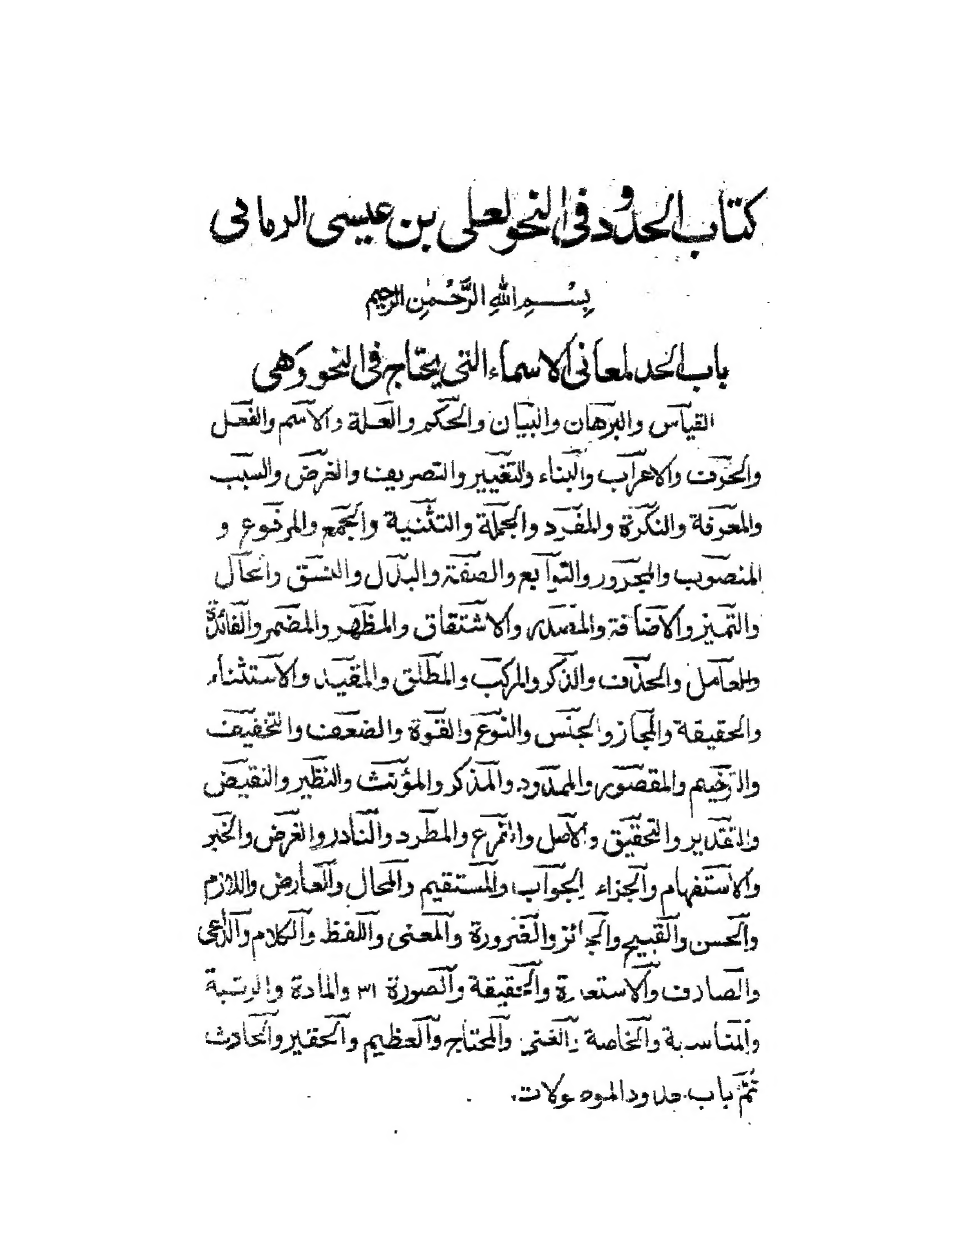 كتاب الحدود في النحو لعلي بن عيسى الرماني
بِسْمِ اللهِ الرَّحْمٰنِ الرحيم
باب الحد لمعاني الاسماء التي يحتاج في النحو وهي
القياس والبرهان والبيان والحكم والعلة والاسم والفعل
والحرف والاعراب والبناء والتغيير والتصريف والغرض والسبب
والمعرفة والنكرة والمفرد والجملة والتثنية والجمع والمرفوع و
المنصوب والمجرور والتوابع والصفة والبدل والنسق والحال
والتميز والاضافة والمصدر والاشتقاق والمظهر والمضمر والفائدة
والعامل والحذف والذكر والمركب والمطلق والمقيد والاستثناء
والحقيقة والمجاز والجنس والنوع والقوة والضعف والتخفيف
والترخيم والمقصور والممدود والمذكر والمؤنث والنظير والنقيض
والتقدير والتحقيق والاصل والفرع والمطرد والنادر والغرض والخبر
والاستفهام والجزاء الجواب والمستقيم والمحال والعارض واللازم
والحسن والقبيح والجائز والضرورة والمعنى واللفظ والكلام والداعى
والصارف والاستعارة والحقيقة والصورة ٣١ والمادة والرتبة
والمناسبة والخاصة والغنى والمحتاج والعظيم والحقير والحادث
ثُمَّ باب حدود الموصولات.